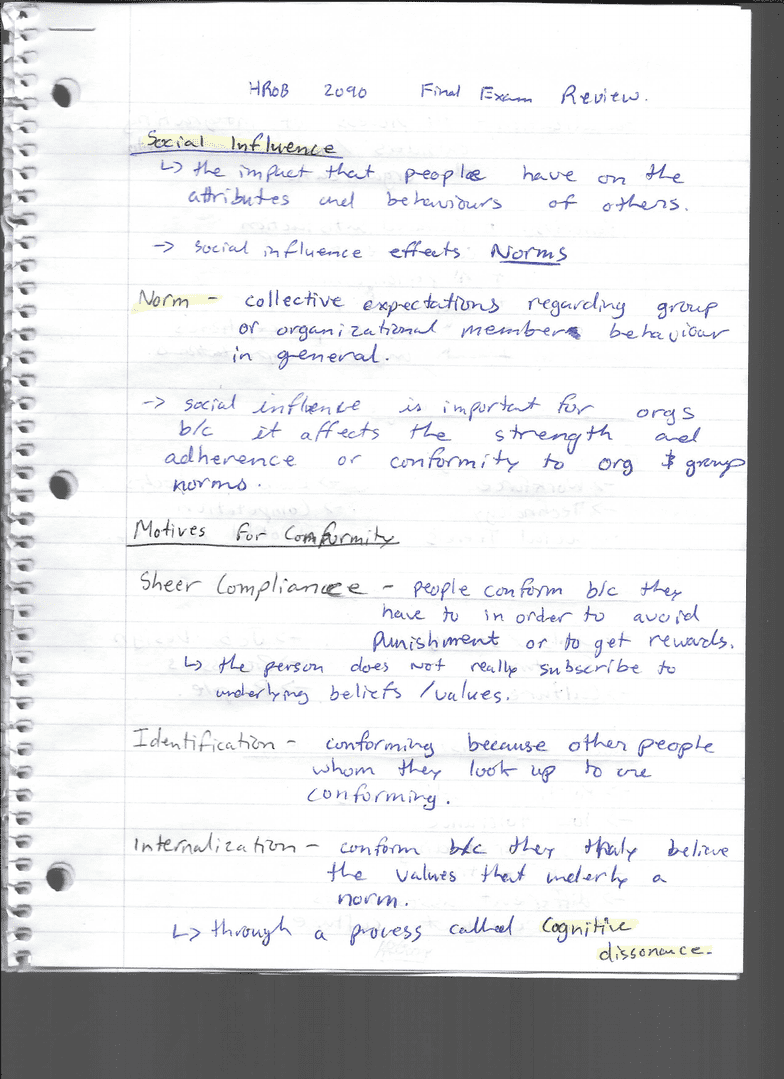 HROB 2090 Final Exam Review.
Social Influence
↳ the impact that people have on the
attributes and behaviours of others.
→ social influence effects Norms
Norm - collective expectations regarding group
or organizational members behaviour
in general.
→ social influence is important for orgs
b/c it affects the strength and
adherence or conformity to org & group
norms.
Motives for Conformity
Sheer Compliance - people conform b/c they
have to in order to avoid
punishment or to get rewards.
↳ the person does not really subscribe to
underlying beliefs/values.
Identification - conforming because other people
whom they look up to are
conforming.
Internalization - conform b/c they truly believe
the values that underly a
norm.
↳ through a process called Cognitive
dissonance.